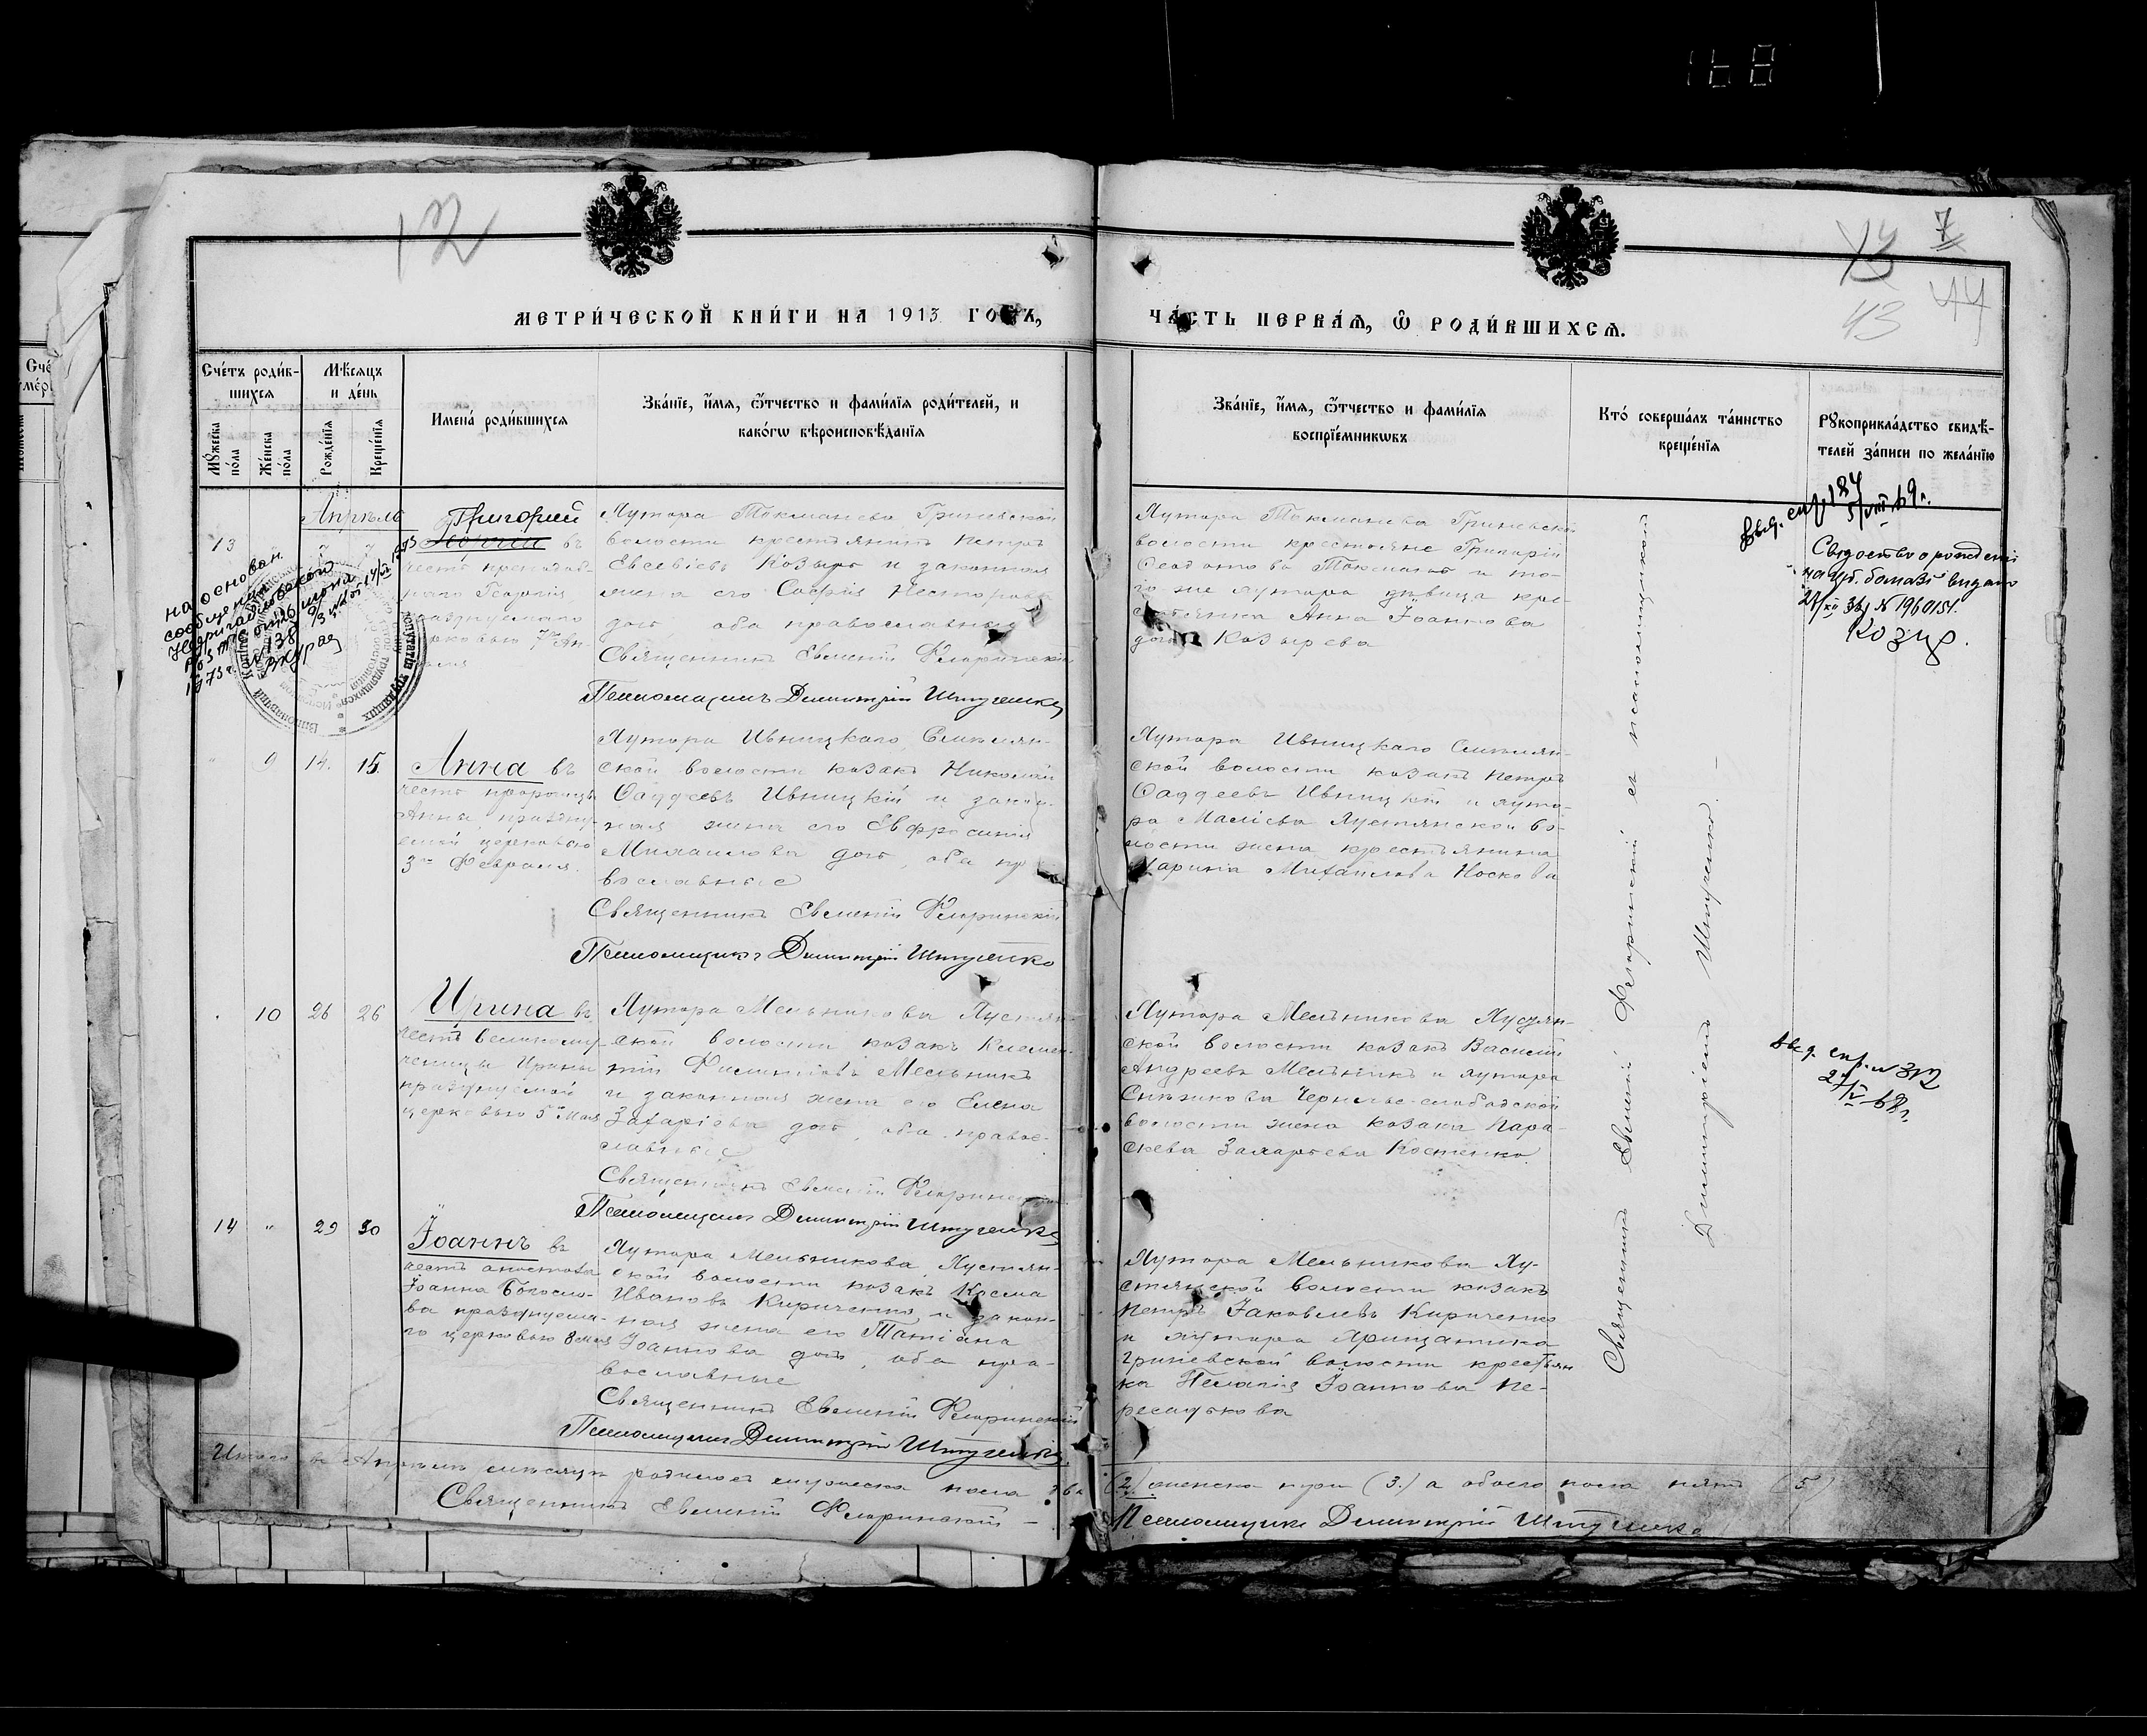 168
12
7
43
44
МЕТРИ́ЧЕСКОЙ КНИ́ГИ НА 1913 ГОДЪ,
ЧА́СТЬ ПЕРВА́Ѧ, Ѽ РОДИ́ВШИХСѦ.
Сче́тъ роди́в-
шихсѧ
Мѣсѧцъ
и де́нь
Мꙋ́жеска
по́ла
Же́нска
по́ла
Рожде́нїѧ
Креще́нїѧ
Имена́ роди́вшихсѧ
Зва́нїе, и́мѧ, ѻ́тчество и фами́лїѧ роди́телей, и
како́гѡ вѣроисповѣ́данїѧ
Зва́нїе, и́мѧ, ѻ́тчество и фами́лїѧ
воспрїе́мникѡвъ
Кто̀ соверша́лъ та́инство
креще́нїѧ
Рꙋкоприкла́дство свидѣ́-
телей за́писи по жела́нїю
Апрѣль
13
7
7
Григорий
въ
честь преподоб-
наго Георгія,
празднуемаго
церковью 7го Ап-
реля
на основан.
сообщения
от 26 июня
Хутора Токманева Гриневской
волости крестьянинъ Петръ
Евсевіевъ Козырь и законная
жена его Софія Несторова
дочь оба православные
Священникъ Евменій Флоринскій
Псаломщикъ Димитрій Штученко
Хутора Токманева Гриневской
волости крестьяне Григорій
го же хутора дѣвица кре-
стьянка Анна Іоаннова
дочь Козырева
Свидоство о рожденні
видано
№ 196015
Козир.
9
14.
15.
Анна въ
честь пророчицы
Анны, праздну-
емой церковью
3го Февраля.
Хутора Ивницкаго Смѣлян-
ской волости козакъ Николай
Фаддеевъ Ивницкій и закон-
ная жена его Евфросинія
Михаилова дочь оба пра-
вославные
Священникъ Евменій Флоринскій
Псаломщикъ Димитрій Штученко
Хутора Ивницкаго Смѣлян-
ской волости козакъ Петръ
Фаддеевъ Ивницкій и хуто-
ра Маліева Хустянской во-
лости жена крестьянина
Марина Михаилова Носкова
10
26
26
Ирина въ
честь великому-
ченицы Ирины
празднуемой
церковью 5го Мая
Хутора Мельникова Хустян-
ской волости козакъ Климен-
тій Филипповъ Мельникъ
и законная жена его Елена
Захаріева дочь, оба право-
славные
Священникъ Евменій Флоринскій
Псаломщикъ Димитрій Штученко
Хутора Мельникова Хустян-
ской волости козакъ Василій
Андреевъ Мельникъ и хутора
волости жена козака Пара-
скева Захарьева Костенко
14
"
29
30
Іоаннъ въ
честь апостола
Іоанна Богосло-
ва празднуема-
го церковью 8 Мая
Хутора Мельникова Хустян-
ской волости козакъ Косма
Ивановъ Кириченко и закон-
ная жена его Татіана
Іоаннова дочь, оба пра-
вославные
Священникъ Евменій Флоринскій
Псаломщикъ Димитрій Штученко
Хутора Мельникова Ху-
стянской волости козакъ
Петръ Іаковлевъ Кириченко
и хутора
Гриневской волости крестьян
ка Пелагія Іоаннова Пе-
Священникъ Евменій Флоринскій съ псаломщикомъ
Димитріемъ Штученко. —
Итого въ Апрѣлѣ мѣсяцѣ родилось мужеска пола два
(2.) женска три (3.) а обоего пола пять (5)
Священникъ Евменій Флоринскій —
Псаломщикъ Димитрій Штученко